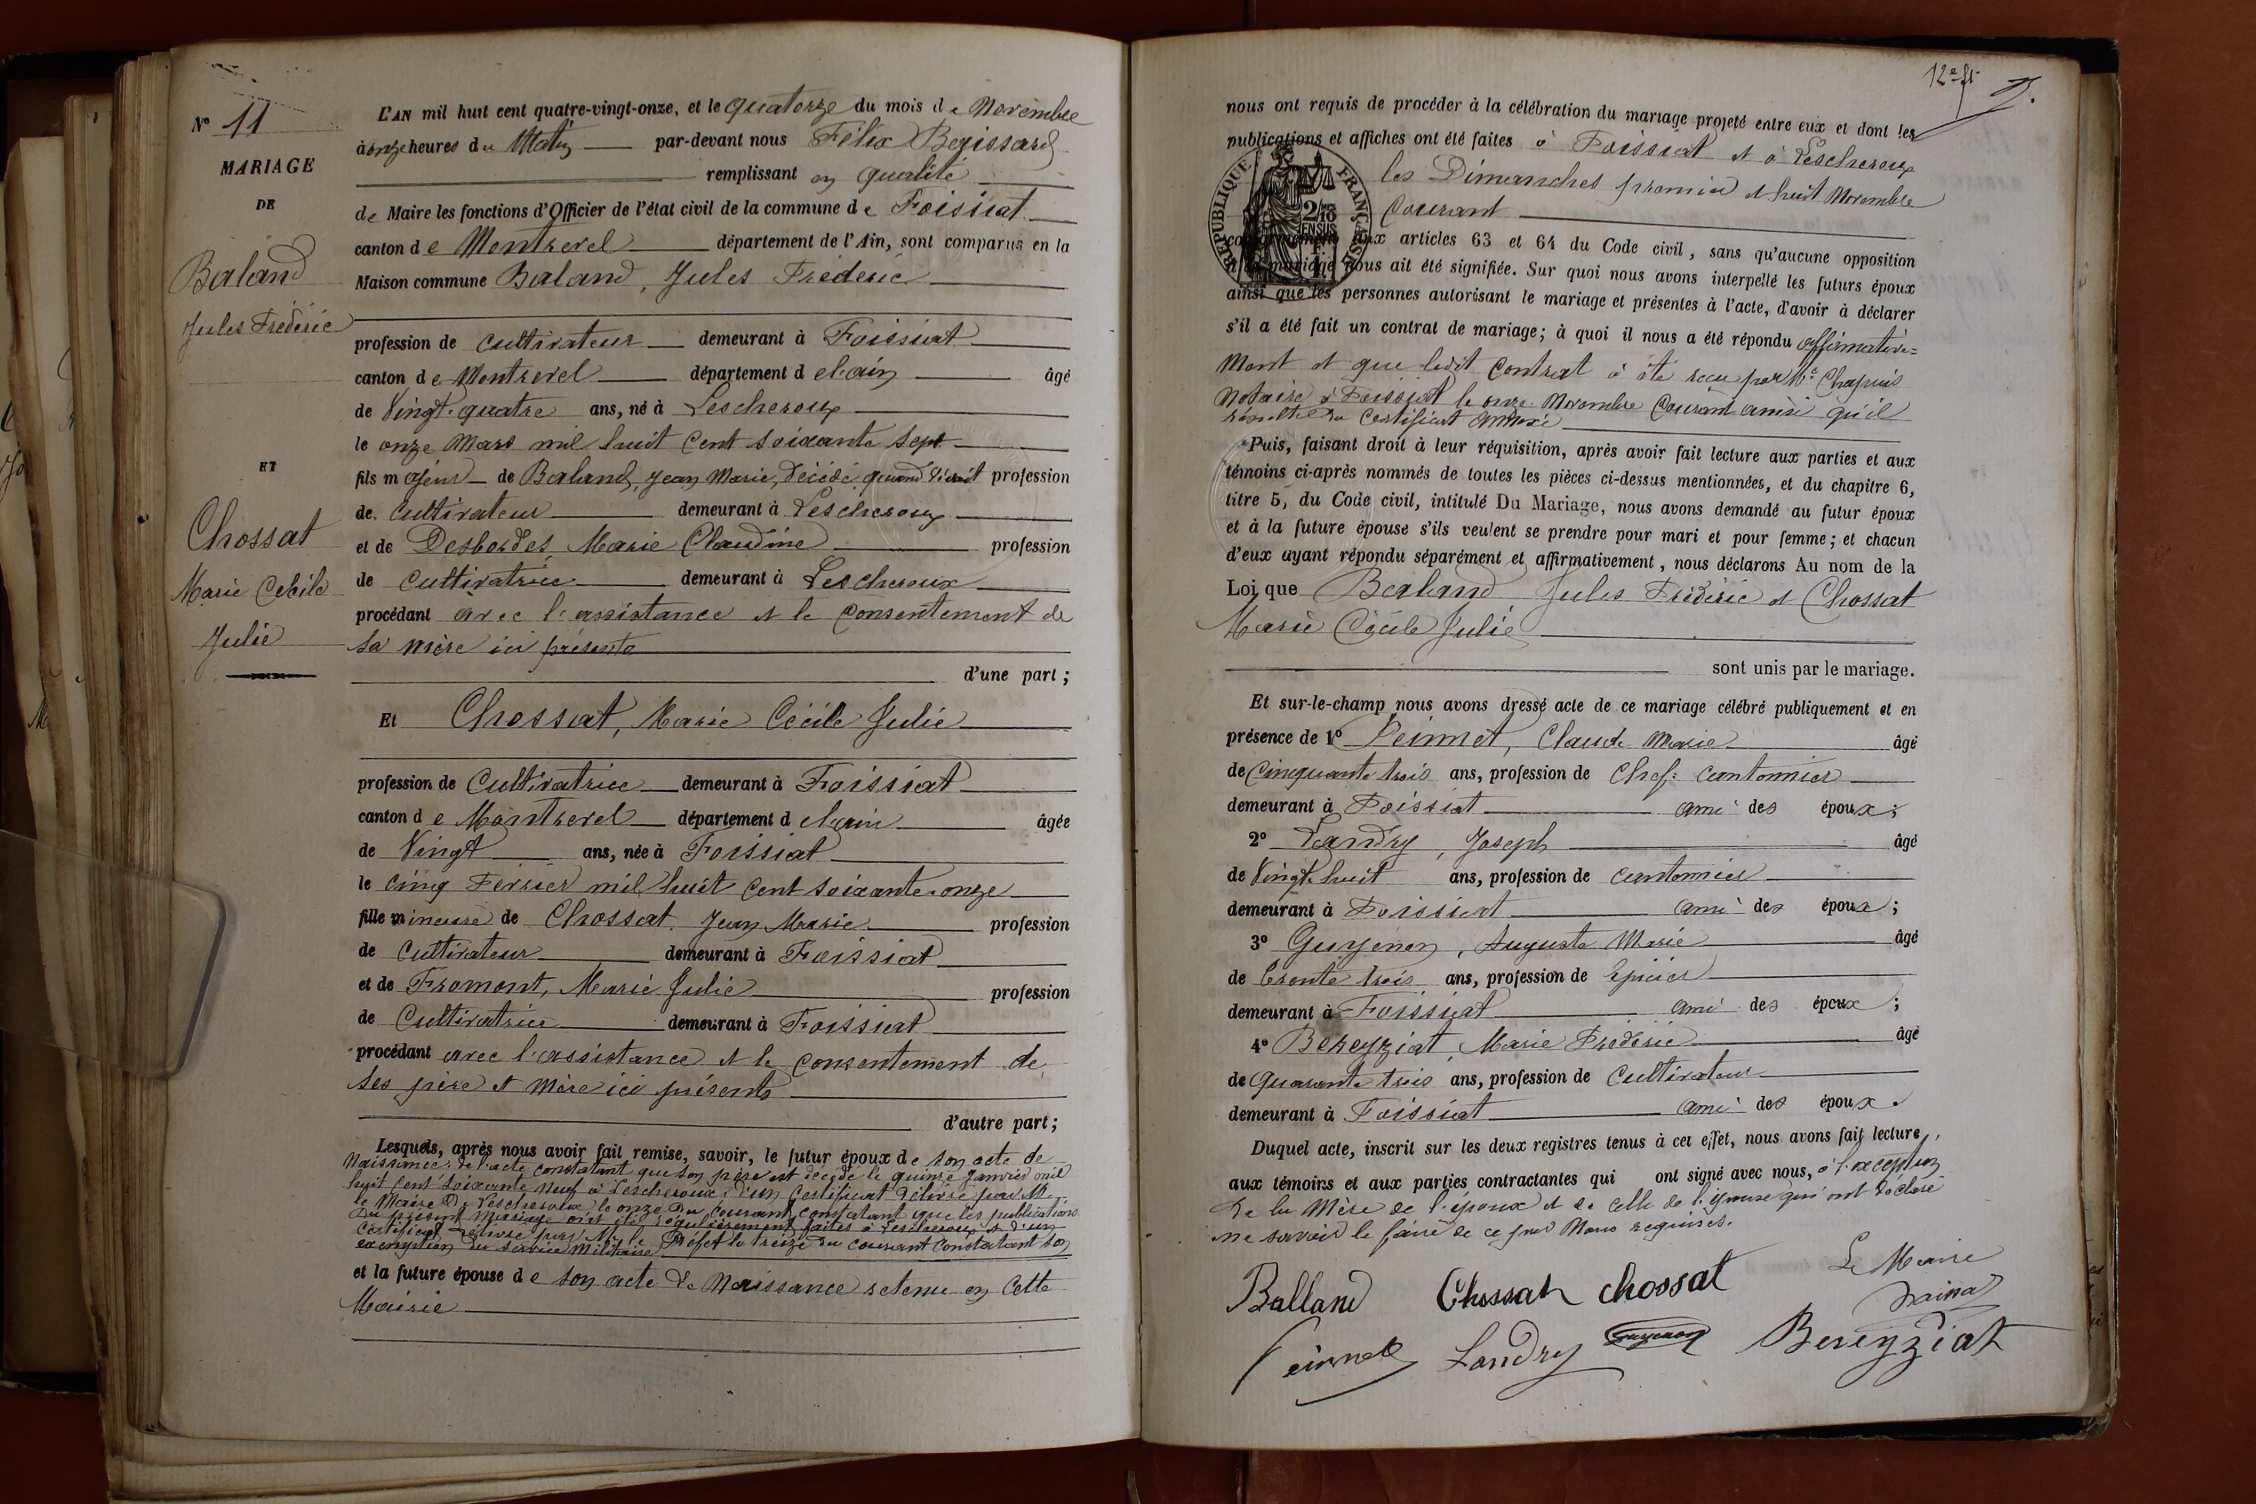 N° 11
MARIAGE
DE
Baland
Jules Frédéric
ET
Chossat
Marie Cécile
Julie
L'AN mil huit cent quatre-vingt-onze, et le quatorze du mois de Novembre
à onze heures du Matin par-devant nous Félix
remplissant en qualité
de Maire les fonctions d'Officier de l'état civil de la commune de Foissiat
canton de Montrevel département de l'Ain, sont comparus en la
Maison commune Baland, Jules Frédéric
profession de cultivateur demeurant à Foissiat
canton de Montrevel département de l'ain âgé
de Vingt-quatre ans, né à Lescheroux
le onze Mars mil huit cent soixante sept
fils majeur de Baland, Jean Marie, décédé, quand vivait profession
de cultivateur demeurant à Lescheroux
et de Desbordes, Marie Claudine profession
de cultivatrice demeurant à Lescheroux
procédant avec l'assistance et le consentement de
sa mère ici présente
d'une part ;
Et Chossat, Marie Cécile Julie
profession de Cultivatrice demeurant à Foissiat
canton de Montrevel département de l'ain âgée
de Vingt ans, née à Foissiat
le cinq Février mil huit cent soixante-onze
fille mineure de Chossat, Jean Marie profession
de cultivateur demeurant à Foissiat
et de Fromont, Marie Julie profession
de Cultivatrice demeurant à Foissiat
procédant avec l'assistance et le consentement de
ses père et mère ici présents
d'autre part ;
Lesquels, après nous avoir fait remise, savoir, le futur époux de son acte de
Naissance, de l'acte constatant que son père est décédé le quinze Janvier mil
huit cent soixante neuf à Lescheroux, d'un certificat délivré par M.
le Maire de Lescheroux le onze du courant constatant que les publications
du présent mariage ont été régulièrement faites à Lescheroux et d'un
certificat délivré par M. le Préfet le treize du courant constatant son
exemption du service militaire
et la future épouse de son acte de Naissance retenu en cette
Mairie
12e
nous ont requis de procéder à la célébration du mariage projeté entre eux et dont les
publications et affiches ont été faites à Foissiat et à Lescheroux
les Dimanches premier et huit Novembre
Courant
RÉPUBLIQUE FRANÇAISE
conformément aux articles 63 et 64 du Code civil, sans qu'aucune opposition
au mariage nous ait été signifiée. Sur quoi nous avons interpellé les futurs époux
ainsi que les personnes autorisant le mariage et présentes à l'acte, d'avoir à déclarer
s'il a été fait un contrat de mariage ; à quoi il nous a été répondu affirmative=
ment et que ledit contrat a été reçu par Me Chapuis
Notaire à Foissiat le onze Novembre Courant ainsi qu'il
résulte du certificat annexé
Puis, faisant droit à leur réquisition, après avoir fait lecture aux parties et aux
témoins ci-après nommés de toutes les pièces ci-dessus mentionnées, et du chapitre 6,
titre 5, du Code civil, intitulé Du Mariage, nous avons demandé au futur époux
et à la future épouse s'ils veulent se prendre pour mari et pour femme ; et chacun
d'eux ayant répondu séparément et affirmativement, nous déclarons Au nom de la
Loi que Baland Jules Frédéric et Chossat
Marie Cécile Julie
sont unis par le mariage.
Et sur-le-champ nous avons dressé acte de ce mariage célébré publiquement et en
présence de 1° Peinnet, Claude Marie âgé
de Cinquante trois ans, profession de Chef cantonnier
demeurant à Foissiat ami des époux ;
2° Landry, Joseph âgé
de Vingt huit ans, profession de cantonnier
demeurant à Foissiat ami des époux ;
3° Guyénon, Auguste Marie âgé
de trente trois ans, profession de Épicier
demeurant à Foissiat ami des époux ;
4° Bereyziat, Marie Frédéric âgé
de Quarante trois ans, profession de Cultivateur
demeurant à Foissiat ami des époux.
Duquel acte, inscrit sur les deux registres tenus à cet effet, nous avons fait lecture
aux témoins et aux parties contractantes qui ont signé avec nous, à l'exception
de la Mère de l'époux et de celle de l'épouse qui ont déclaré
ne savoir le faire de ce par Nous requises.
Balland Chossat Chossat Le Maire
Peinnet Landry Guyenon Bereyziat